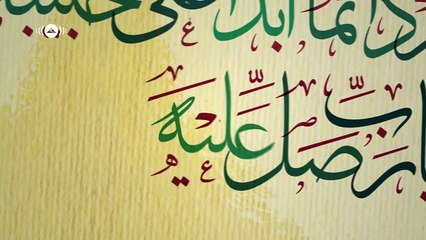 دائما أبدا على
يا رب صل عليه